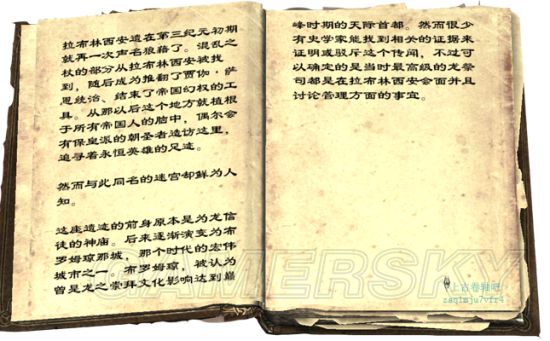 拉布林西安遗在第三纪元初期
就再一次声名狼藉了。混乱之
杖的部分从拉布林西安被找
到，随后成为推翻了贾伽·萨
恩统治、结束了帝国幻权的工
具。从那以后这个地方就植根
于所有帝国人的脑中，偶尔会
有保皇派的朝圣者造访这里，
追寻着永恒英雄的足迹。
然而与此同名的迷宫却鲜为人
知。
这座遗迹的前身原本是为龙信
徒的神庙。后来逐渐演变为布
罗姆琼那城，那个时代的宏伟
城市之一。布罗姆琼，被认为
曾是龙之崇拜文化影响达到巅
峰时期的天际首都。然而很少
有史学家能找到相关的证据来
证明或驳斥这个传闻，不过可
以确定的是当时最高级的龙祭
司都是在拉布林西安会面并且
讨论管理方面的事宜。
GAMERSKY
上古卷轴吧
zaq1mju7vfr4